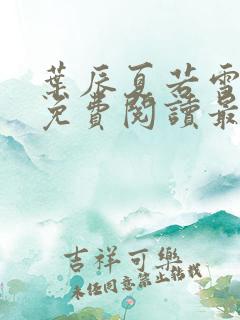 葉辰夏若雪
免費閱讀最
吉祥可樂
未經同意禁止轉載